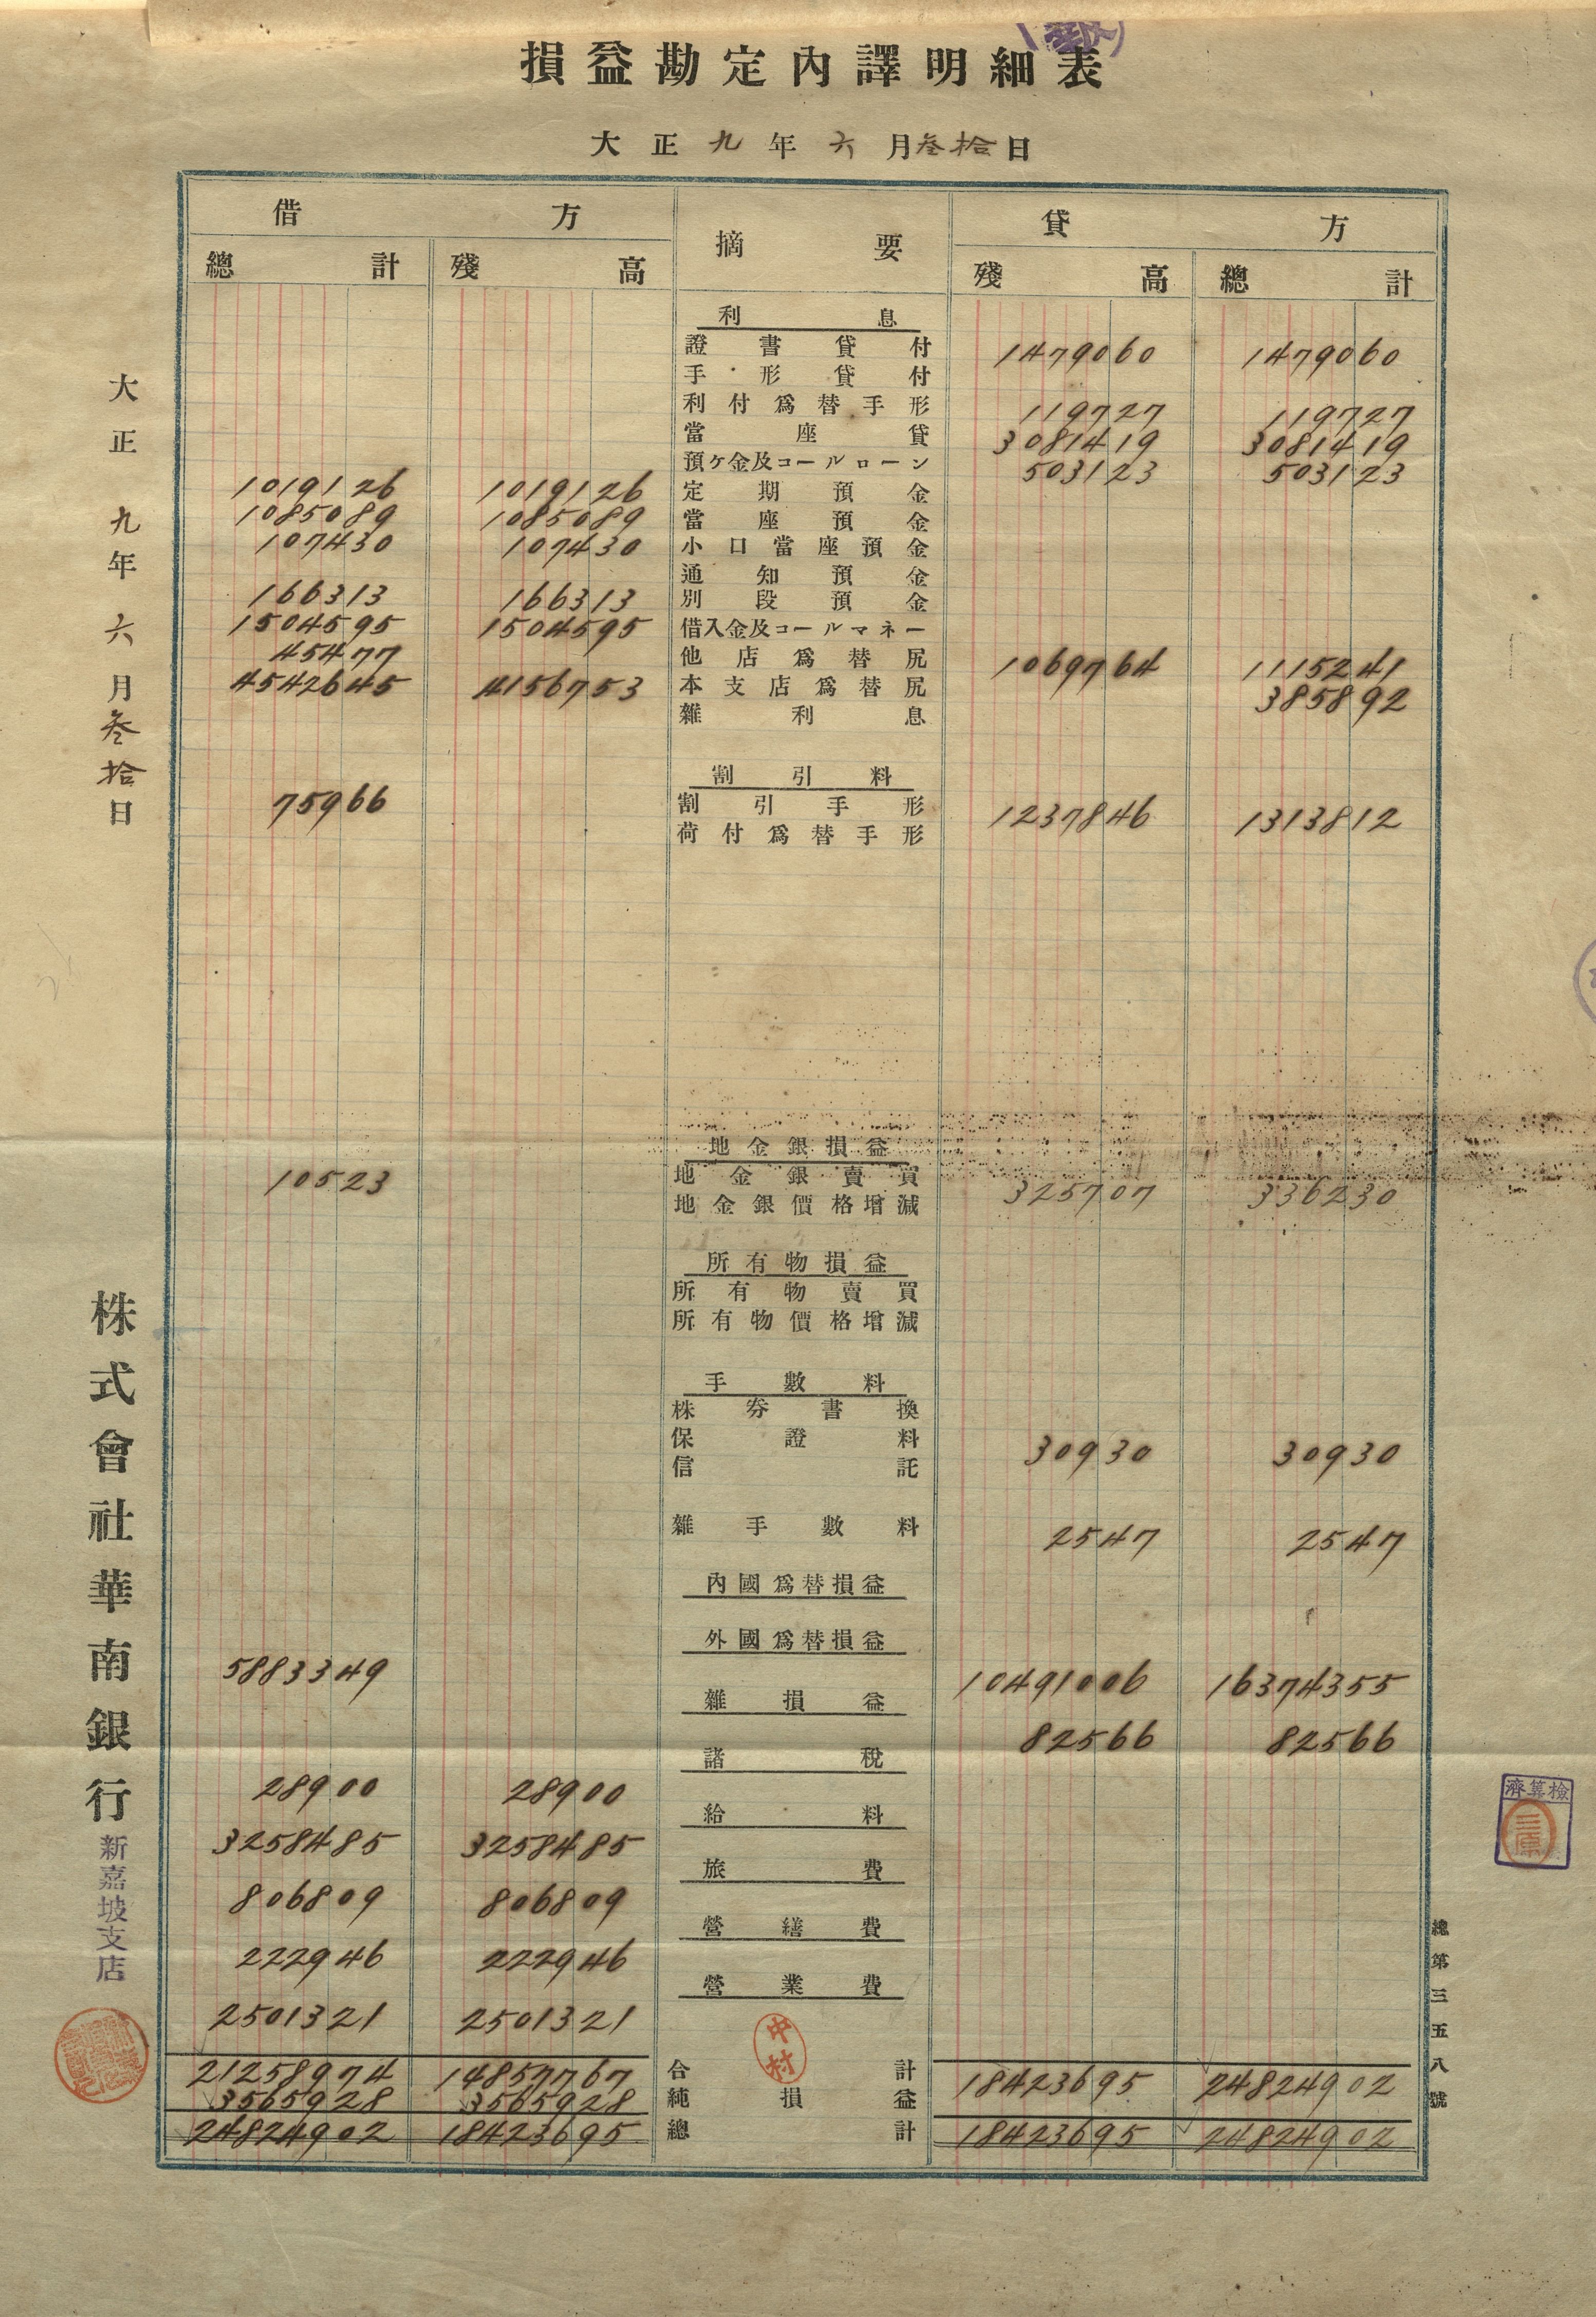 損益勘定內譯明細表
大正九年六月叁拾日
借方 摘要 貸方
總計 殘高 殘高 總計
利息
證書貸付 1479060 1479060
手形貸付
利付爲替手形 119727 119727
當座貸 3081419 3081419
預ケ金及コールローン 503123 503123
1019126 1019126 定期預金
1085089 1085089 當座預金
107430 107430 小口當座預金
通知預金
166313 166313 別段預金
1504595 1504595 借入金及コールマネー
45477 他店爲替尻 1069764 1115241
4542645 4156753 本支店爲替尻 385892
雜利息
割引料
75966 割引手形 1237846 1313812
荷付爲替手形
地金銀損益
10523 地金銀賣買 325707 336230
地金銀價格增減
所有物損益
所有物賣買
所有物價格增減
手數料
株券書換
保證料 30930 30930
信託
雜手數料 2547 2547
內國爲替損益
外國爲替損益
5883349 10491006 16374355
雜損益
82566 82566
諸稅
28900 28900
給料
3258485 3258485
旅費
806809 806809
營繕費
222946 222946
營業費
2501321 2501321
中村
21258974 14857767 合計 18423695 24824902
3565928 3565928 純損益
24824902 18423695 總計 18423695 24824902
大正九年六月叁拾日
株式會社華南銀行新嘉坡支店
檢算濟
總第三五八號